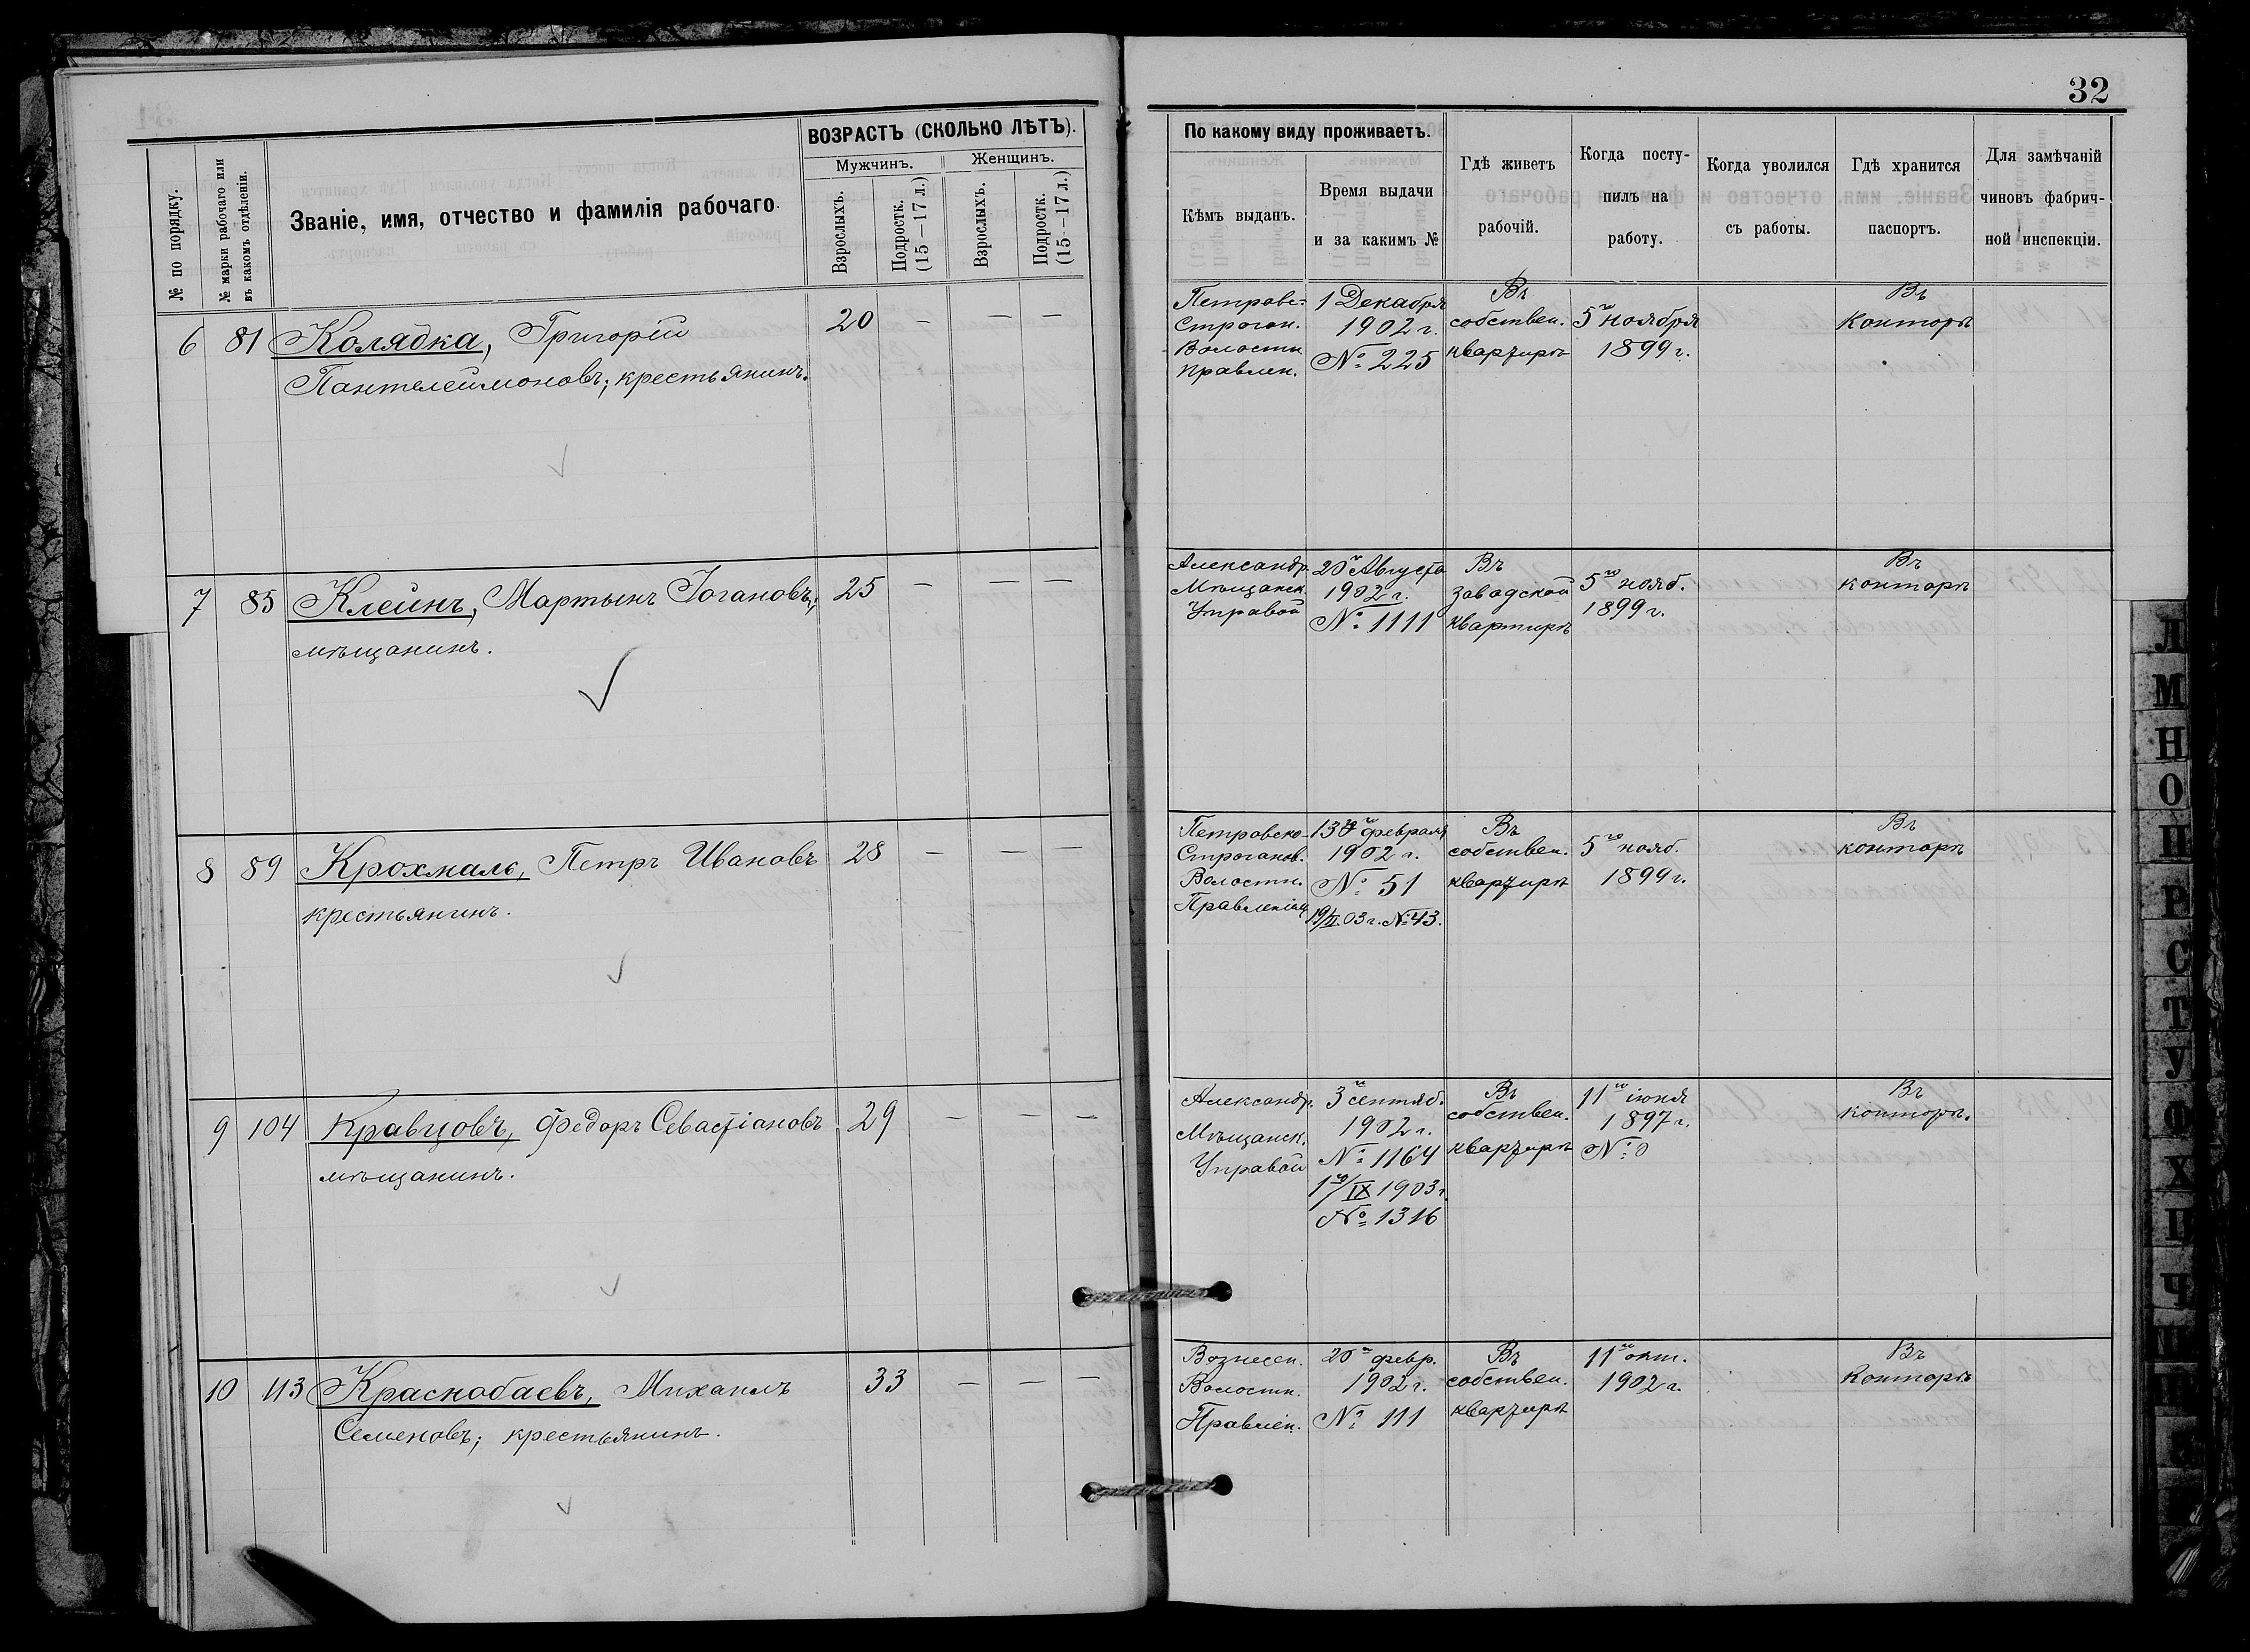 32
ВОЗРАСТЪ (СКОЛЬКО ЛѢТЪ).
Мужчинъ. Женщинъ.
№ по порядку.
№ марки рабочаго или
въ какомъ отдѣленіи.
Званіе, имя, отчество и фамилія рабочаго.
Взрослыхъ.
Подростк.
(15—17 л.)
Взрослыхъ.
Подростк.
(15—17 л.)
По какому виду проживаетъ.
Кѣмъ выданъ.
Время выдачи
и за какимъ №
Гдѣ живетъ
рабочій.
Когда посту-
пилъ на
работу.
Когда уволился
съ работы.
Гдѣ хранится
паспортъ.
Для замѣчаній
чиновъ фабрич-
ной инспекціи.
6 81 Колядка, Григорій 20 — — —
Пантелеймоновъ; крестьянинъ.
Петровс-
Строган.
Волостн.
Правлен.
1 Декабря
1902 г.
№ 225
Въ
собствен.
квартирѣ
5го ноября
1899 г.
Въ
Конторѣ
7 85 Клейнъ, Мартынъ Іогановъ; 25 — — —
мѣщанинъ.
Александр.
Мѣщанск.
Управой
20 Августа
1902 г.
№ 1111
Въ
заводской
квартирѣ
5го нояб.
1899 г.
Въ
конторѣ
8 89 Крохмаль, Петръ Ивановъ 28 — — —
крестьянинъ.
Петровско-
Строганов.
Волостн.
Правленіемъ
февраля
1902 г.
№ 51
03 г. № 43.
Въ
собствен.
квартирѣ
5го нояб.
1899 г.
Въ
конторѣ
9 104 Кравцовъ, Федоръ Севастіановъ 29 — — —
мѣщанинъ.
Александр.
Мѣщанск.
Управой
3 сентяб.
1902 г.
№ 1164
1го/IX 1903 г.
№ 1316
Въ
собствен.
квартирѣ
11го іюня
1897 г.
№ 0
Въ
конторѣ.
10 113 Краснобаевъ, Михаилъ 33 — — —
Семеновъ; крестьянинъ.
Вознесен.
Волостн.
Правлен.
20 февр.
1902 г.
№ 111
Въ
собствен.
квартирѣ
11го окт.
1902 г.
Въ
Конторѣ
Л
М
Н
О
П
Р
С
Т
У
Ф
Х
Ц
Ч